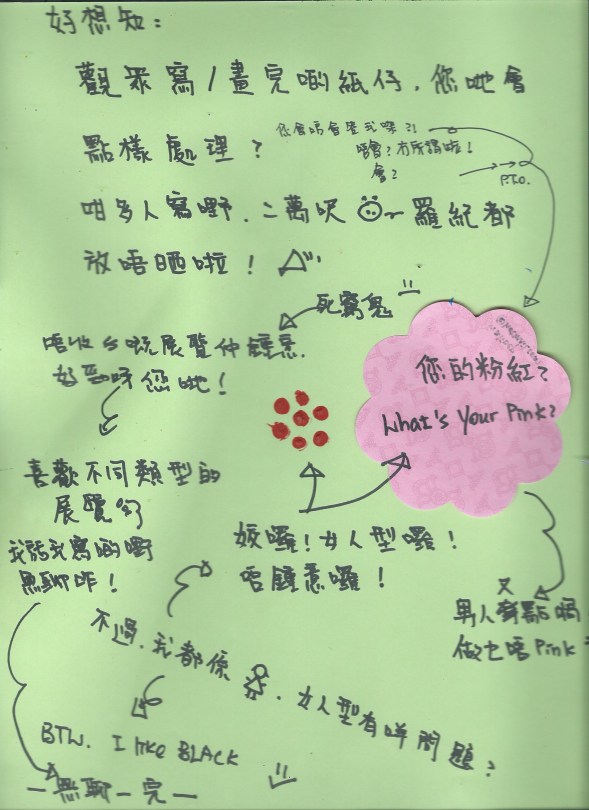 好想知：
觀眾寫/畫完啲紙仔，您哋會
點樣處理？
您會唔會壁我㗎?!
唔會？冇所謂啦！
會？
P.T.O.
咁多人寫嘢，二萬呎 羅紀都
放唔晒啦！
死窮鬼
展覽仲鍾意
好 呀您哋！
您的粉紅？
What's Your Pink?
喜歡不同類型的
展覽
我話我寫啲嘢
無聊咋！
姣囉！女人型囉！
唔鍾意囉！
男人又
做乜唔Pink
不過，我都係 ，女人型有咩問題？
BTW. I like BLACK
—無聊—完—